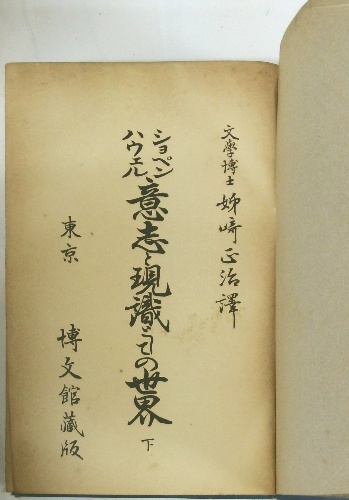 文學博士 姉崎正治譯
ショペン
ハウェル
意志と現識としての世界
下
東京 博文館藏版